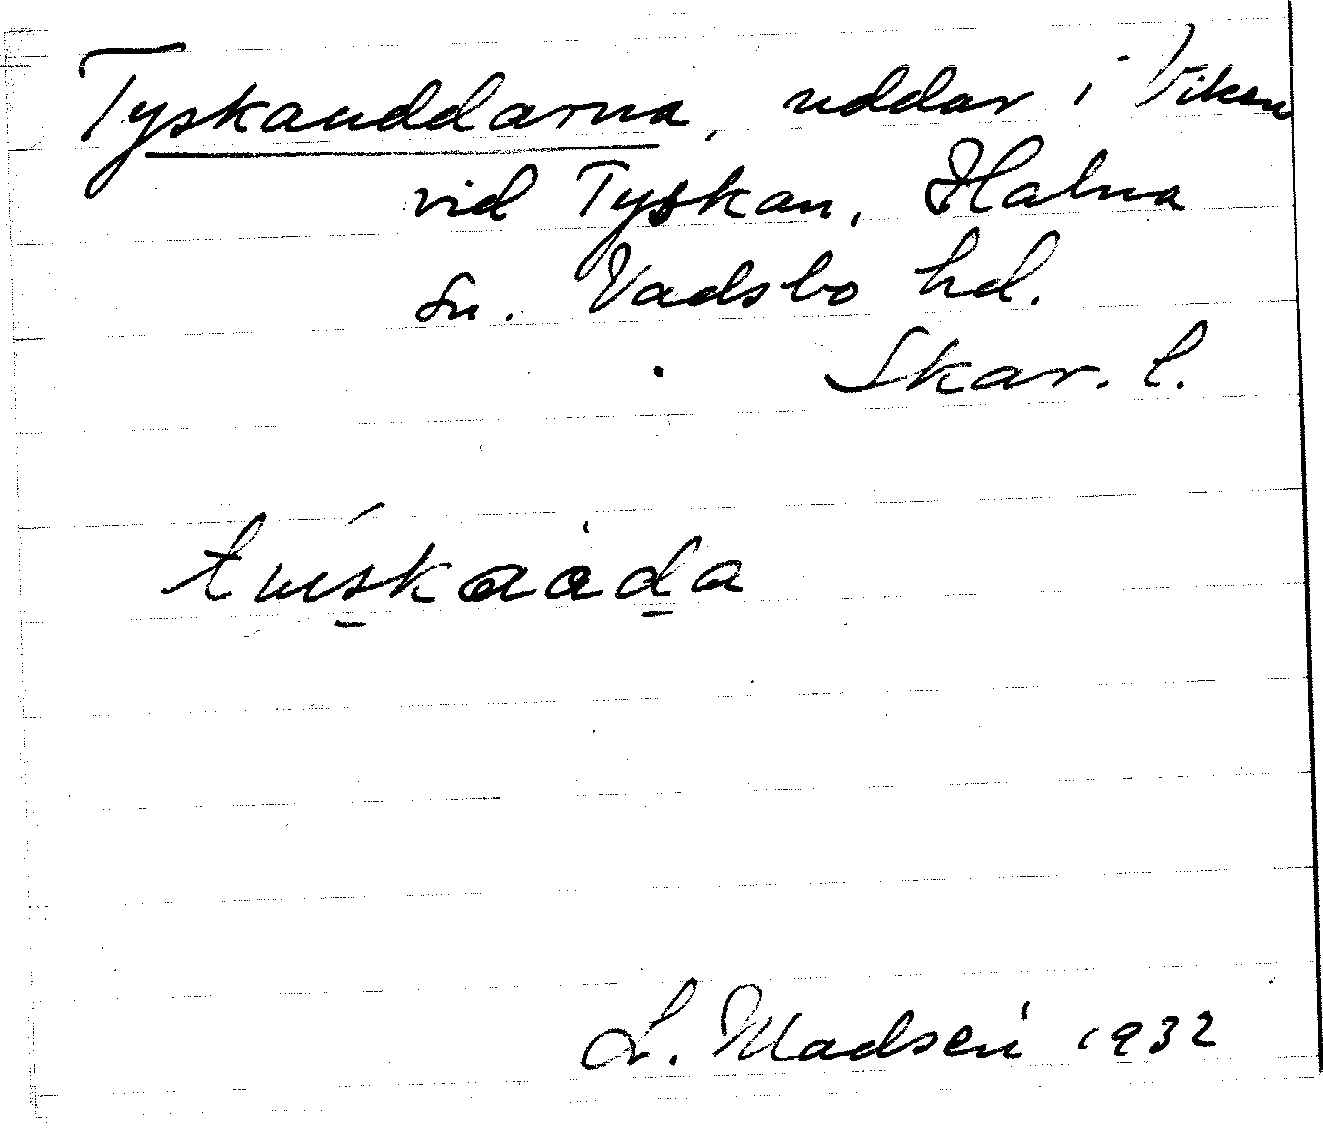 Tyskauddarna, uddar i Viken
vid Tyskan, Halna
sn. Vadsbo hd.
Skar. l.
L. Madsén 1932